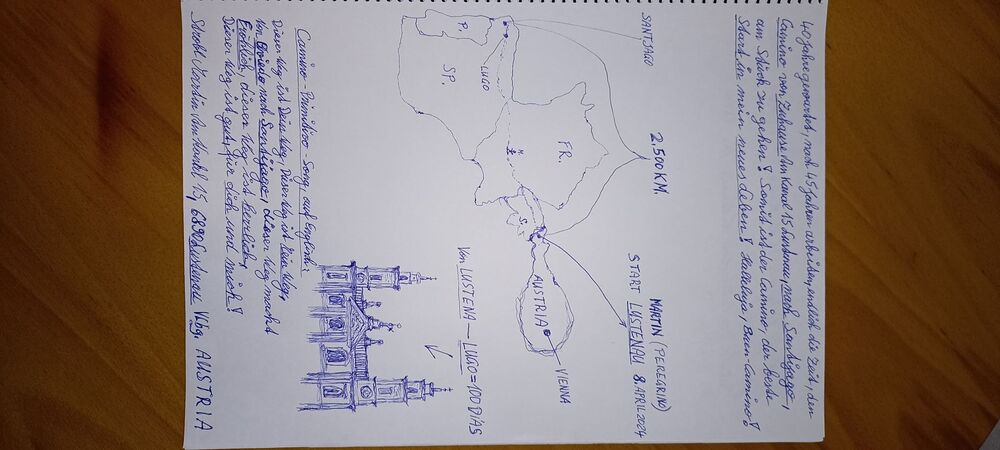 40 Jahre gewartet, nach 45 Jahren arbeiten, endlich die Zeit, den
Camino von Zuhause Am Kanal 15 Lustenau, nach Santijago,
am Stück zu gehen! Somit ist der Camino, der beste
Start in mein neues Leben! Halleluja, Buen-Camino!
SANTJAGO
2.500 KM.
MARTIN (PEREGRINO)
START LUSTENAU 8. APRIL 2024
P.
LUGO
SP.
FR.
M.
S.
AUSTRIA
VIENNA
Von LUSTENA — LUGO = 100 DIAS
Camino-Primitivo-Song, auf English:
Dieser Weg ist Dein Weg, Dieser Weg ist Mein Weg,
Von Oviedo nach Santijago, dieser Weg macht
Fröhlich, dieser Weg ist herrlich,
Dieser Weg ist gut, für dich und mich!
Martin Am Kanal 15, 6890 Lustenau Vlbg. AUSTRIA